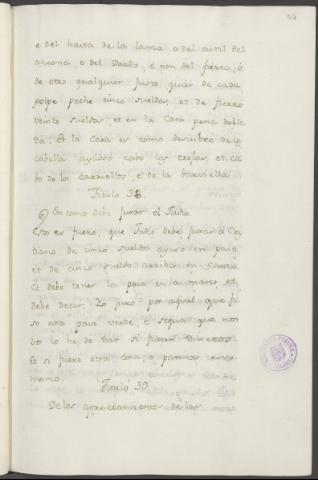 e del hasta de la lanza, o del astil del
arcona, o del Dardo, e non del fierro, o
de otro qualquier fuste quier de cada
golpe peche cinco sueldos, et de fierro
veinte sueldos, et en la Cara pena dobla
da. Et la Cara es como descubre de los
cabellos ayuso cabo las orejas, et ca
bo de los carriellos, e de la barviella
Titulo 38.
En como debe jurar el Judio
Esto es fuero, que Judio debe jurar a Cris
tiano de cinco sueldos ayuso en paja,
et de cinco sueldos arriba en Carta.
Et debe tener la paja en la mano, et
debe decir. Yo juro por aquel que fi
so esta paja verde, e sequa que non
vo lo he de dar
Et si fuere otra cosa, o paños
mano.
Titulo 39
De los apreciamientos de las